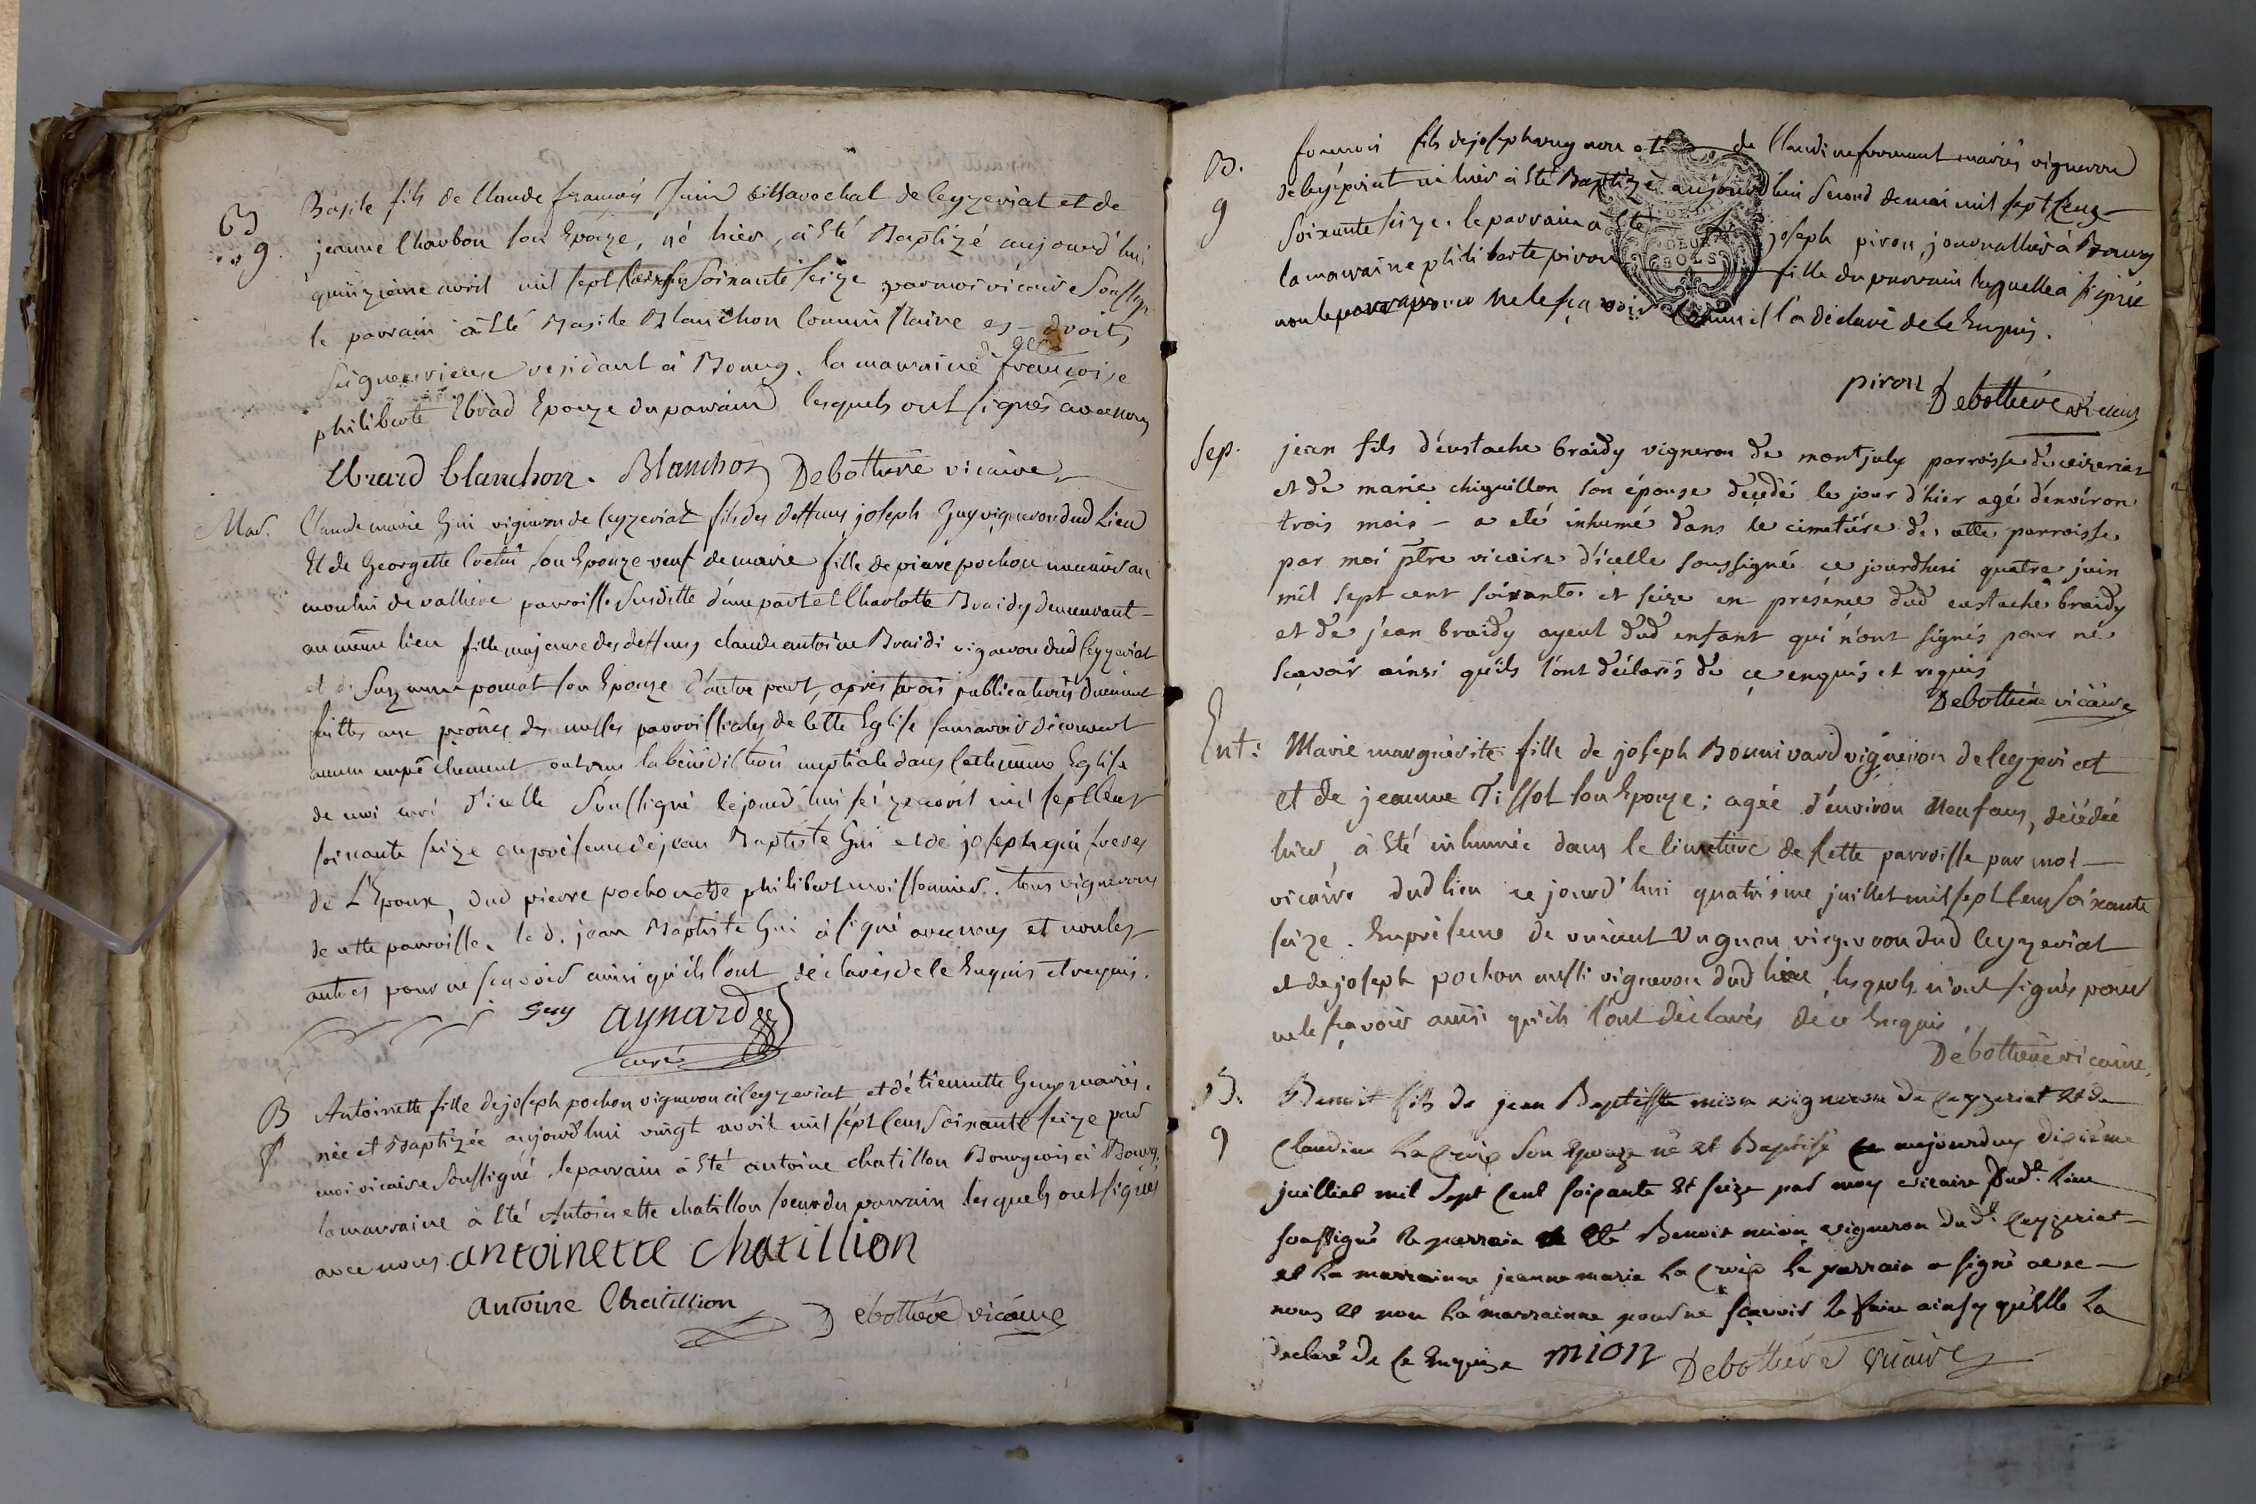 B
g.
Basile fils de Claude françois Juin dit savochat de Ceyzeriat et de
jeanne Charbon son Epouze, né hier, à Eté Baptizé aujourd'hui
quinzieme avril mil sept Cens soixante seize par moi vicaire Soussigné
le parrain à Eté Basile Blanchon Commissaire es-droits
seigneuriaux residant à Bourg. la marraine françoise
philiberte Ebrad Epouze du parrain lesquels ont signés avec nous
Ebrard blanchon. Blanchon Debothiere vicaire
Mar. Claude marie Gui vigneron de Ceyzeriat fils des deffuns joseph Guy vigneron dud Lieu
Et de Georgette Cochin son Epouze veuf de marie fille de pierre pochon meunier au
moulin de valliere parroisse susditte d'une part et Charlotte Braidy demeurant
au même lieu fille majeure des deffuns claude antoine Braidi vigneron dud Ceyzeriat
et de Suzanne pomat son Epouze d'autre part, après trois publications duement
faittes aux prônes des messes parroissiales de Cette Eglise sans avoir découvert
aucun empêchement ont reçu la bénédiction nuptiale dans Cette même Eglise
de moi curé d'icelle Soussigné cejourd'hui seize avril mil sept Cens
soixante seize en présence de jean Baptiste Gui et de joseph gui freres
de L'Epoux, dud pierre pochon et de philibert moissonnier. tous vignerons
de cette parroisse. le d. jean Baptiste Gui à signé avec nous et non les
autres pour ne sçavoir ainsi qu'ils l'ont déclarés de ce Enquis et requis.
guy aynard
curé
B
f
Antoinette fille de joseph pochon vigneron à Ceyzeriat et de tiennette Guy mariés.
née et Baptizée aujourd'hui vingt avril mil sept Cens Soixante seize par
moi vicaire Soussigné. le parrain à Eté antoine chatillon Bourgeois à Bourg,
la marraine à Eté Antoinette chatillon soeur du parrain lesquels ont signés
avec nous. antoinette chatillion
antoine Chatillion Debothiere vicaire
B.
g
françois fils de joseph et de Claudine formant mariés vignerons
de Ceyzeriat né hier à Eté Baptizé aujourd'hui second de mai mil sept Cens
Soixante seize. le parrain à Eté joseph piron, journallier à Bourg
la marraine philiberte piron fille du parrain laquelle a signée
non le parrain pour ne le sçavoir Comme il l'a déclaré de ce Enquis.
piron Debothiere vicaire
Sep. jean fils d'eustache braidy vigneron de montjuly parroisse de ceizeriat
et de marie chiquillon son épouse décédé le jour d'hier agé d'environ
trois mois - a eté inhumé dans le cimetiére de cette parroisse
par moi ptre vicaire d'icelle soussigné ce jourdhui quatre juin
mil sept cent soixante et seize en présence dud eustache braidy
et de jean braidy ayeul dud enfant qui n'ont signés pour ne
scavoir ainsi qu'ils l'ont déclarés de ce enquis et requis
Debothiere vicaire
Ent: Marie marguérite fille de joseph Bonnivard vigneron de Ceyzeriat
et de jeanne Tissot son Epouze; agée d'environ Neuf ans, décédée
hier, à Eté inhumée dans le Cimetiere de Cette parroisse par moi
vicaire dud lieu ce jourd'hui quatrieme juillet mil sept Cens soixante
seize. En présence de vincent Vugnon vigneron dud Ceyzeriat
et de joseph pochon aussi vigneron dud lieu, lesquels n'ont signés pour
ne le sçavoir ainsi qu'ils l'ont déclarés de ce Enquis.
Debothiere vicaire.
B.
g
Benoit fils de jean Baptiste mion vigneron de Ceyzeriat et de
Claudine La Croix Son Epouze né et Baptisé aujourduy dixième
juilliet mil Sept Cent soixante Et seize par moy vicaire dud. lieu
soussigné le parrain a Eté Benoit mion vigneron dud. Ceyzeriat
et la marrainne jeanne marie La Croix le parrain a signé avec
nous et non la marrainne pour ne sçavoir le faire ainsy qu'elle la
declaré de ce Enquise mion Debothiere vicaire